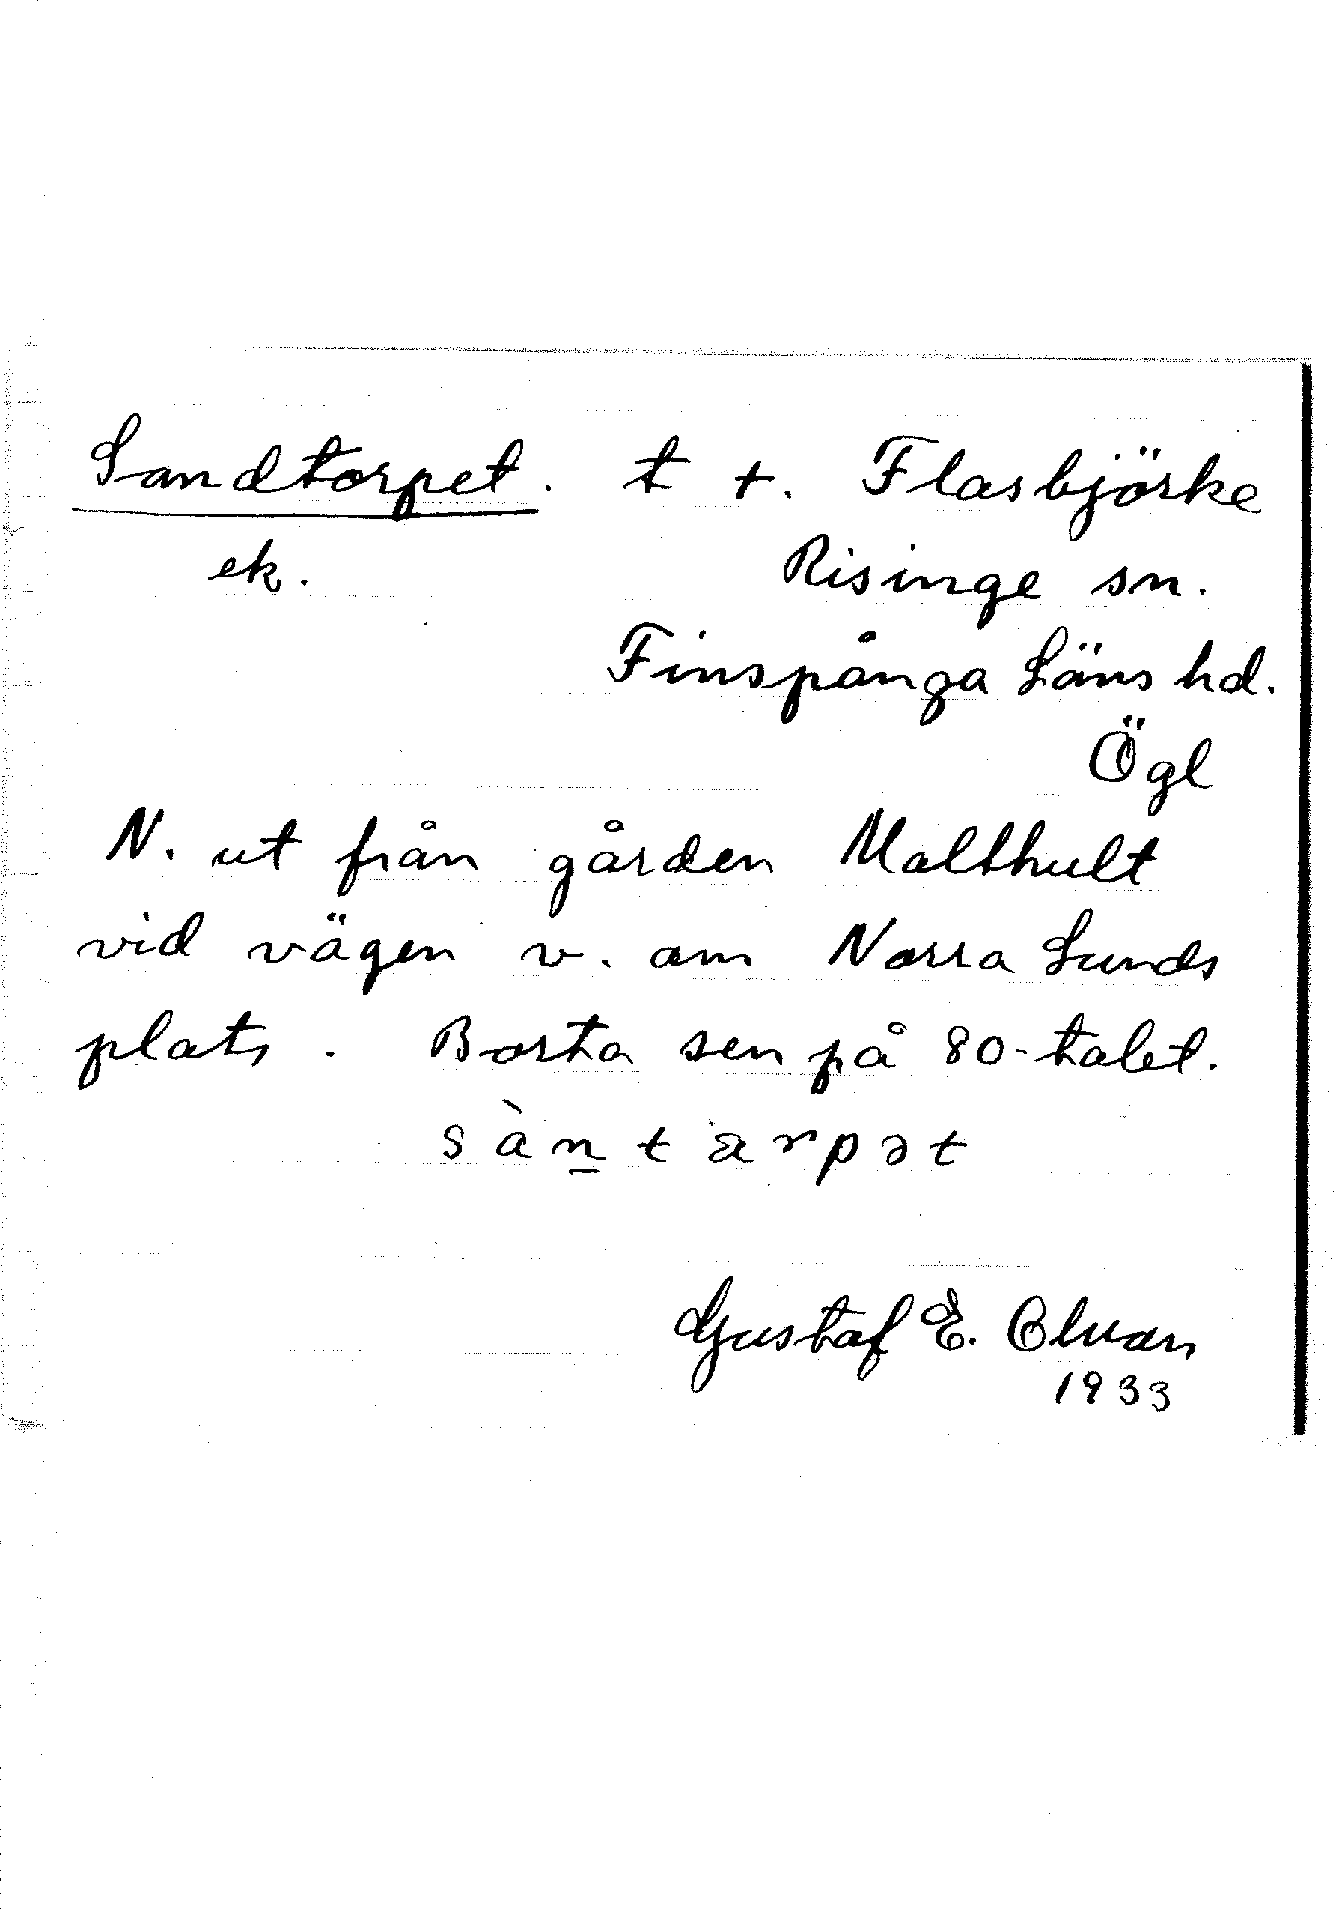 Sandtorpet. t +. Flasbjörke
ek. Risinge sn.
Finspånga Läns hd.
Ögl
N. ut från gården Malthult
vid vägen v. om Norra Lunds
plats. Borta sen på 80-talet.
sàn̲tarpət
Gustaf E.
1933